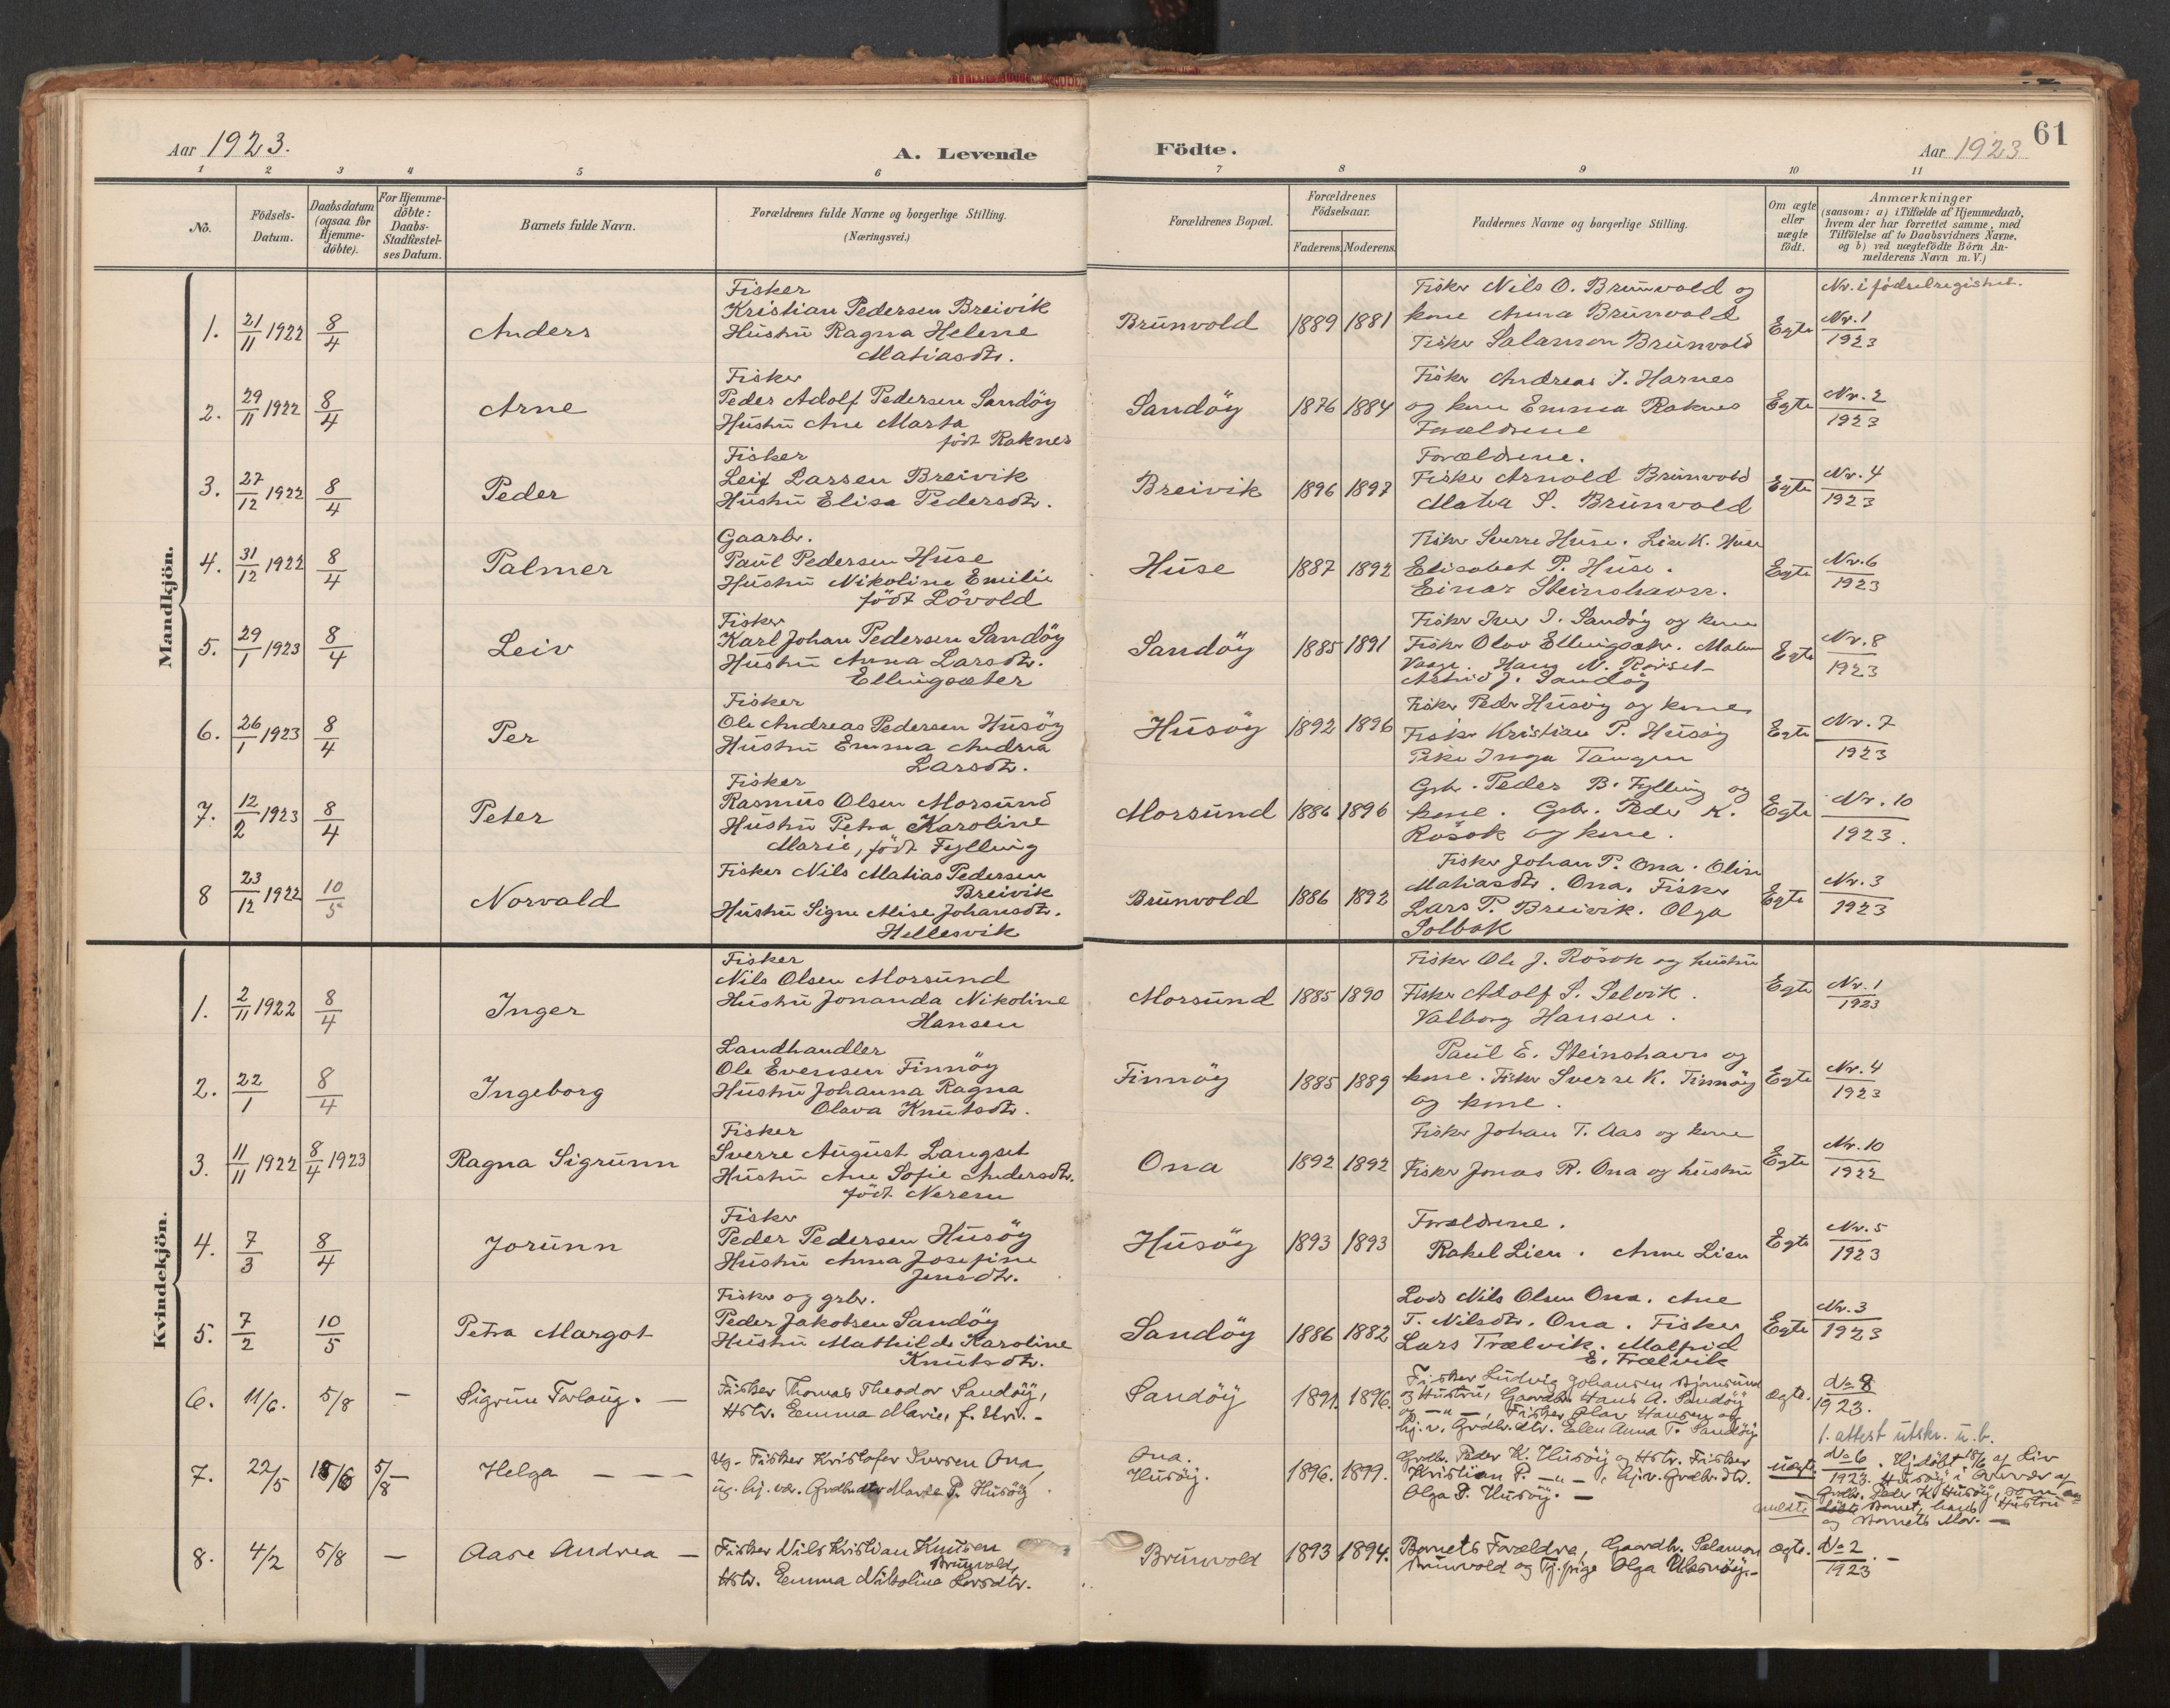 Aar 1923.
A. Levende
Födte.
Aar 1923
61
1 2 3 4 5 6 7 8 9 10 11
No.
Födsels-Datum.
Daabsdatum (ogsaa for Hjemme-döbte).
For Hjemme-döbte: Daabs-Stadfæstel-ses Datum.
Barnets fulde Navn.
Forældrenes fulde Navne og borgerlige Stilling.
(Næringsvei.)
Forældrenes Bopæl.
Forældrenes Födselsaar.
Faderens. Moderens.
Faddernes Navne og borgerlige Stilling.
Om ægte eller uægte födt.
Anmærkninger
(saasom: a) i Tilfælde af Hjemmedaab,
hvem der har forrettet samme, med
Tilföielse af to Daabsvidners Navne,
og b) ved uægtefödte Börn An-
melderens Navn m. V.)
Nr. i födselregistret.
Mandkjön.
1. 21/11 1922 8/4 Anders
Fisker
Kristian Pedersen Breivik
Hustru Ragna Helene
Matiasdtr.
Brunvold 1889 1881
Fisker Nils O. Brunvold og
kone Anna Brunvold
Fisker Salamon Brunvold
Egte Nr. 1 1923
2. 29/11 1922 8/4 Arne
Fisker
Peder Adolf Pedersen Sandöy
Hustru Ane Marta
födt Raknes
Sandöy 1876 1884
Fisker Andreas J. Harnes
og kone Emma Raknes
Forældrene
Egte Nr. 2 1923
3. 27/12 1922 8/4 Peder
Fisker
Leif Larsen Breivik
Hustru Elisa Pedersdtr.
Breivik 1896 1897
Forældrene.
Fisker Arnold Brunvold
Matea S. Brunvold
Egte Nr. 4 1923
4. 31/12 1922 8/4 Palmer
Gaarbr.
Paul Pedersen Huse
Hustru Nikoline Emilie
födt Lövold
Huse 1887 1892
Fisker Sverre Huse. Lise K. Huse
Elisabet P. Huse.
Einar Steinshavn.
Egte Nr. 6 1923
5. 29/1 1923 8/4 Leiv
Fisker
Karl Johan Pedersen Sandöy
Hustru Anna Larsdtr.
Ellingsæter
Sandöy 1885 1891
Fisker Iver J. Sandöy og kone
Fisker Olav Ellingsæter. Malene
Vaage. Hans N. Rörset
Astrid J. Sandöy
Egte Nr. 8 1923
6. 26/1 1923 8/4 Per
Fisker
Ole Andreas Pedersen Husöy
Hustru Emma Andrea
Larsdtr.
Husöy 1892 1896
Fisker Peder Husöy og kone
Fisker Kristian P. Husöy
Pike Inga Tangen
Egte Nr. 7 1923
7. 12/2 1923 8/4 Peter
Fisker
Rasmus Olsen Morsund
Hustru Petra Karoline
Marie, födt Fylling
Morsund 1886 1896
Grbr. Peder B. Fylling og
kone. Grbr. Peder K.
Rösok og kone.
Egte Nr. 10 1923.
8 23/12 1922 10/5 Norvald
Fisker Nils Matias Pedersen
Breivik
Hustru Signe Alise Johansdtr.
Hellesvik
Brunvold 1886 1892
Fisker Johan P. Ona. Olise
Matiasdtr. Ona. Fisker
Lars P. Breivik. Olga
Solbak
Egte Nr. 3 1923
Kvindekjön.
1. 2/11 1922 8/4 Inger
Fisker
Nils Olsen Morsund
Hustru Jonanda Nikoline
Hansen
Morsund 1885 1890
Fisker Ole J. Rösok og hustru
Fisker Adolf S. Selvik.
Valborg Hansen.
Egte Nr. 1 1923
2. 22/1 8/4 Ingeborg
Landhandler
Ole Evensen Finnöy
Hustru Johanna Ragna
Olava Knutsdtr.
Finnöy 1885 1889
Paul E. Steinshavn og
kone. Fisker Sverre K. Finnöy
og kone.
Egte Nr. 4 1923
3. 11/11 1922 8/4 1923 Ragna Sigrunn
Fisker
Sverre August Langset
Hustru Ane Sofie Andersdtr.
födt Nerem
Ona 1892 1892
Fisker Johan T. Aas og kone
Fisker Jonas R. Ona og hustru
Egte Nr. 10 1922
4. 7/3 8/4 Jorunn
Fisker
Peder Pedersen Husöy
Hustru Anna Josefine
Jensdtr.
Husöy 1893 1893
Forældrene.
Rakel Lien. Anne Lien
Egte Nr. 5 1923
5. 7/2 10/5 Petra Margot
Fisker og grbr.
Peder Jakobsen Sandöy
Hustru Mathilde Karoline
Knutsdtr.
Sandöy 1886 1882
Lods Nils Olsen Ona. Ane
T. Nilsdtr. Ona. Fisker
Lars Trælvik. Malfrid
E. Trælvik
Egte Nr. 3 1923
6. 11/6. 5/8 - Sigrun Torlaug. -
Fisker Thomas Theodor Sandöy,
Hstr. Emma Marie, f. Uri. -
Sandöy 1891. 1896.
Fisker Ludvig Johansen
og Hustru, Gaardbr. Hans A. Sandöy
og -"-, Fisker Olav Hansen og
hj.v. Grdbr.dtr. Ellen Anna T. Sandöy
ægte. No 8 1923.
1. attest utskr. u.b.
7. 22/5 15/6 5/8 - Helga - - -
Ug. Fisker Kristofer Iversen Ona,
ug. hj. vær. Grdbr.dtr. Marie P. Husöy.
Ona.
Husöy. 1896. 1899.
Grdbr. Peder K. Husöy og Hstr. Fisker
Kristian P. -"-, hj.v. Grdbr.dtr.
Olga P. Husöy. -
uægte. No 6 1923. Hj.döbt 15/6 af Liv
Husöy i Overvær af
Grdbr. Peder K. Husöy, som an-
meldte Barnet, hans Hustru
og Barnets Mor. -
8. 4/2 5/8 - Aase Andrea -
Fisker Nils Kristian Knutsen
Brunvold,
Hstr. Emma Nikoline Larsdtr.
Brunvold 1893 1894.
Barnets Forældre, Gaardbr. Salamon
Brunvold og Tj.pige Olga
ægte. No 2 1923. -